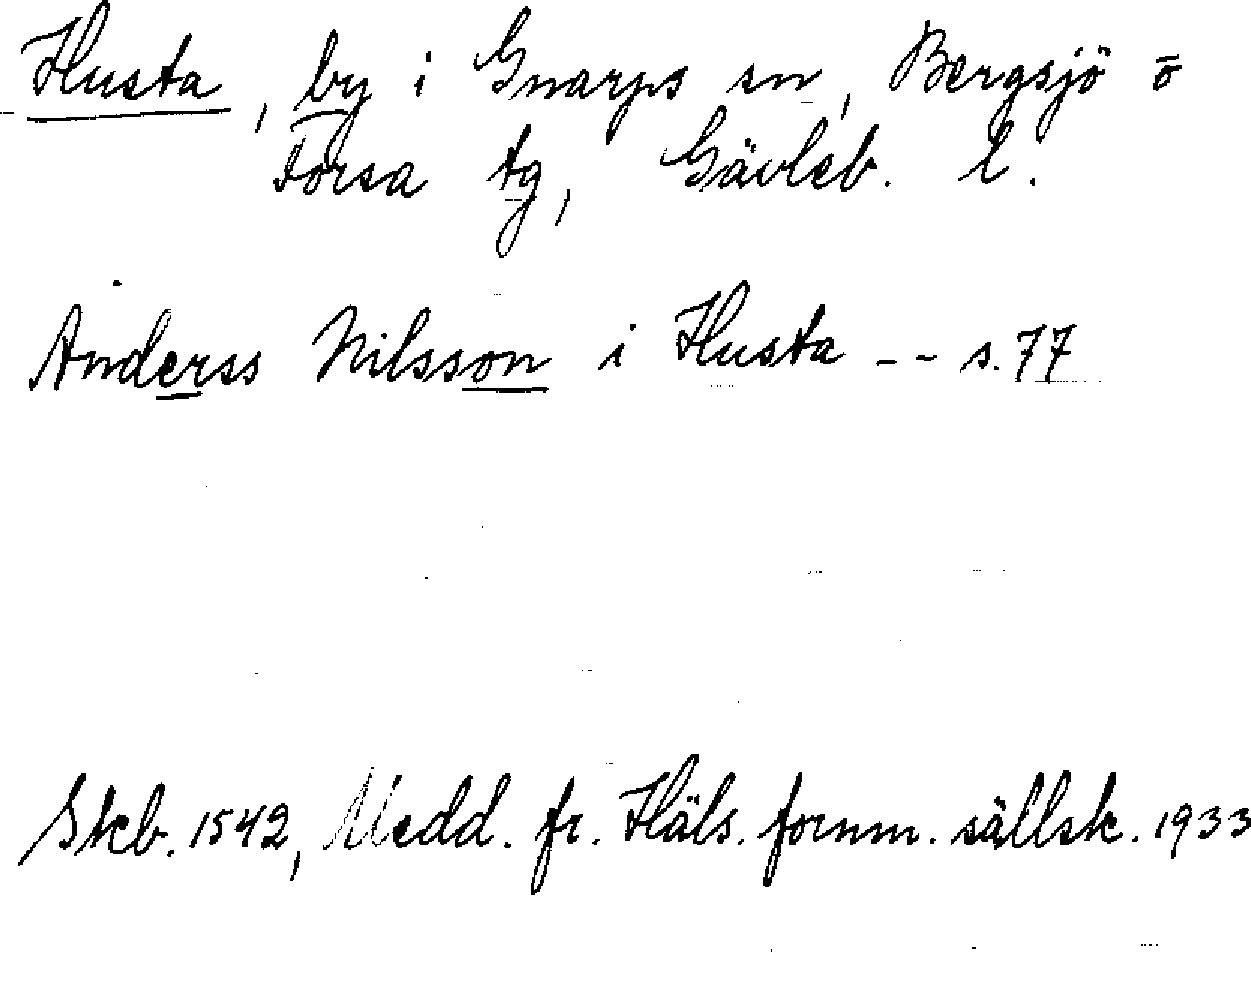 Husta, by i Gnarps sn, Bergsjö o
Forsa tg, Gävleb. l.
Anderss Nilsson i Husta -- s. 77
Skb. 1542, Medd. fr. Häls. fornm. sällsk. 1933